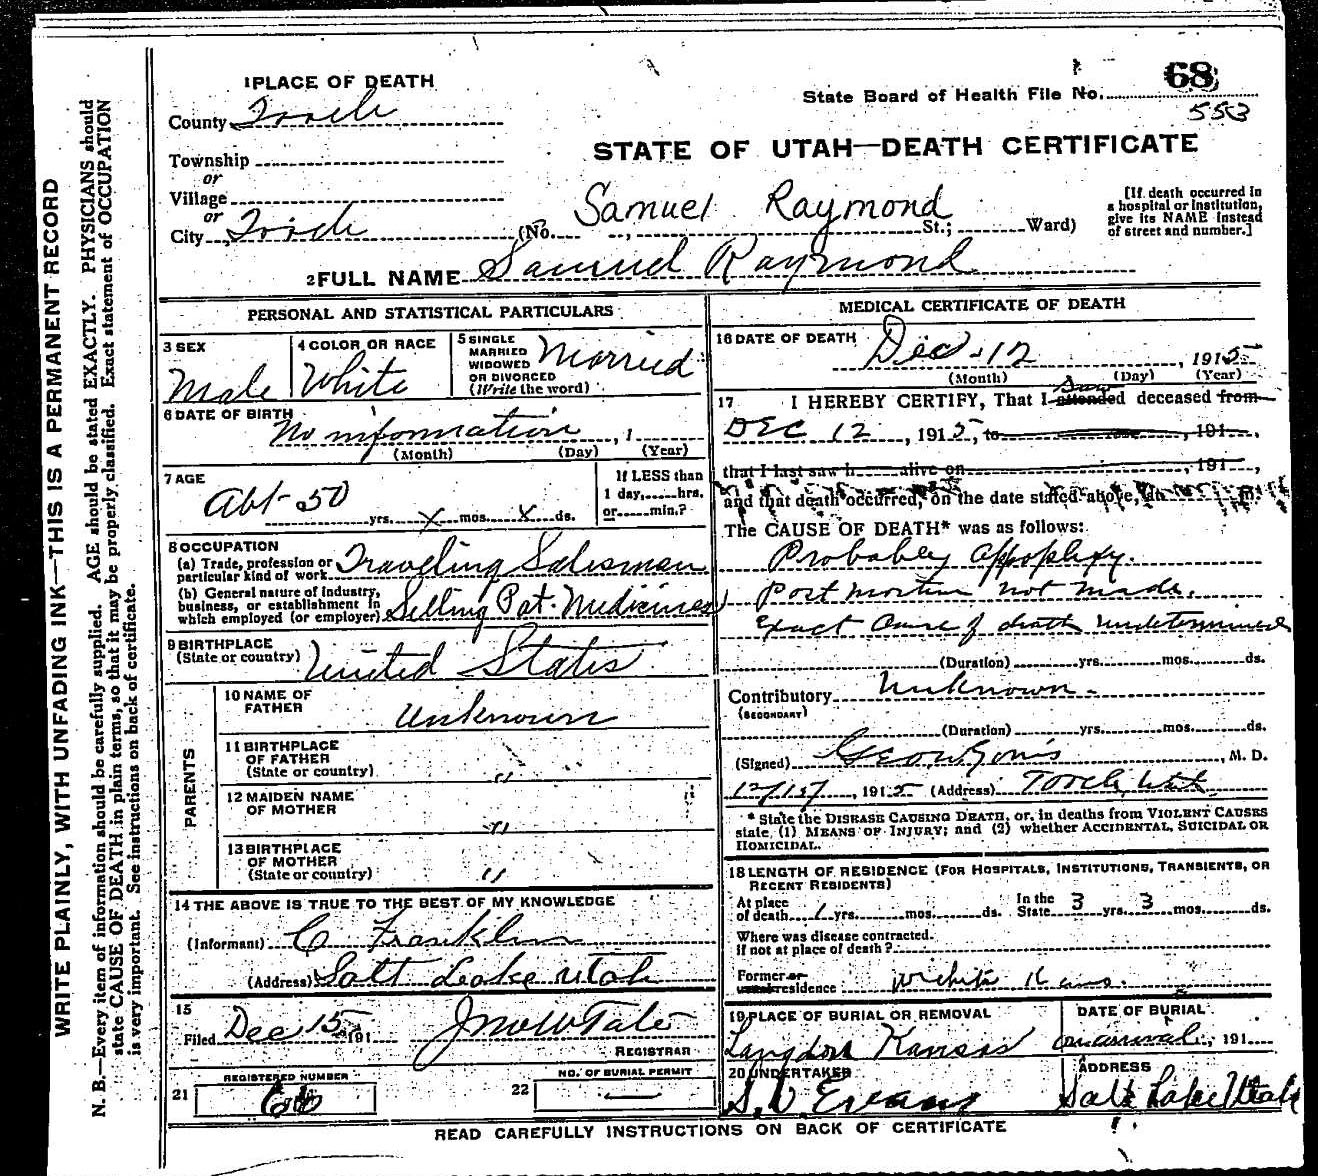 1 PLACE OF DEATH
68
State Board of Health File No.
553
County Tooele
STATE OF UTAH—DEATH CERTIFICATE
Township
or
Village
or
City Tooele (No. Samuel Raymond St.; Ward)
[If death occurred in
a hospital or institution,
give its NAME instead
of street and number.]
2 FULL NAME Samuel Raymond
PERSONAL AND STATISTICAL PARTICULARS
3 SEX
Male
4 COLOR OR RACE
White
5 SINGLE
MARRIED
WIDOWED
OR DIVORCED
(Write the word)
Married
6 DATE OF BIRTH
No information, 1
(Month) (Day) (Year)
7 AGE
Abt 50 yrs. X mos. X ds.
If LESS than
1 day, hrs.
or min.?
8 OCCUPATION
(a) Trade, profession or
particular kind of work Traveling Salesman
(b) General nature of industry,
business, or establishment in
which employed (or employer) Selling Pat. Medicines
9 BIRTHPLACE
(State or country) United States
PARENTS
10 NAME OF
FATHER Unknown
11 BIRTHPLACE
OF FATHER
(State or country) "
12 MAIDEN NAME
OF MOTHER "
13 BIRTHPLACE
OF MOTHER
(State or country) "
14 THE ABOVE IS TRUE TO THE BEST OF MY KNOWLEDGE
(Informant) C Franklin
(Address) Salt Lake Utah
15
Filed Dec 15, 191
Jno W Tate
REGISTRAR
21
REGISTERED NUMBER
66
22
NO. OF BURIAL PERMIT
—
MEDICAL CERTIFICATE OF DEATH
16 DATE OF DEATH
Dec 12, 1915
(Month) (Day) (Year)
17 I HEREBY CERTIFY, That I attended Saw deceased from
DEC 12, 1915, to , 191 ,
that I last saw h alive on , 191 ,
and that death occurred, on the date stated above, at m.
The CAUSE OF DEATH* was as follows:
Probabley Appoplexy.
Post mortem not made.
Exact Cause of death undetermined
(Duration) yrs. mos. ds.
Contributory Unknown -
(SECONDARY)
(Duration) yrs. mos. ds.
(Signed) , M. D.
12/15/, 1915 (Address) Tooele, Utah
* State the DISEASE CAUSING DEATH, or, in deaths from VIOLENT CAUSES
state, (1) MEANS OF INJURY; and (2) whether ACCIDENTAL, SUICIDAL OR
HOMICIDAL.
18 LENGTH OF RESIDENCE (FOR HOSPITALS, INSTITUTIONS, TRANSIENTS, OR
RECENT RESIDENTS)
At place
of death 1 yrs. mos. ds. In the
State 3 yrs. 3 mos. ds.
Where was disease contracted.
if not at place of death?
Former or
usual residence Wichita Kans.
19 PLACE OF BURIAL OR REMOVAL
Langdon Kansas
DATE OF BURIAL
on arrival, 191
20 UNDERTAKER
S. D. Evans
ADDRESS
Salt Lake Utah
READ CAREFULLY INSTRUCTIONS ON BACK OF CERTIFICATE
WRITE PLAINLY, WITH UNFADING INK—THIS IS A PERMANENT RECORD
N. B.—Every item of information should be carefully supplied. AGE should be stated EXACTLY. PHYSICIANS should
state CAUSE OF DEATH in plain terms, so that it may be properly classified. Exact statement of OCCUPATION
is very important. See instructions on back of certificate.